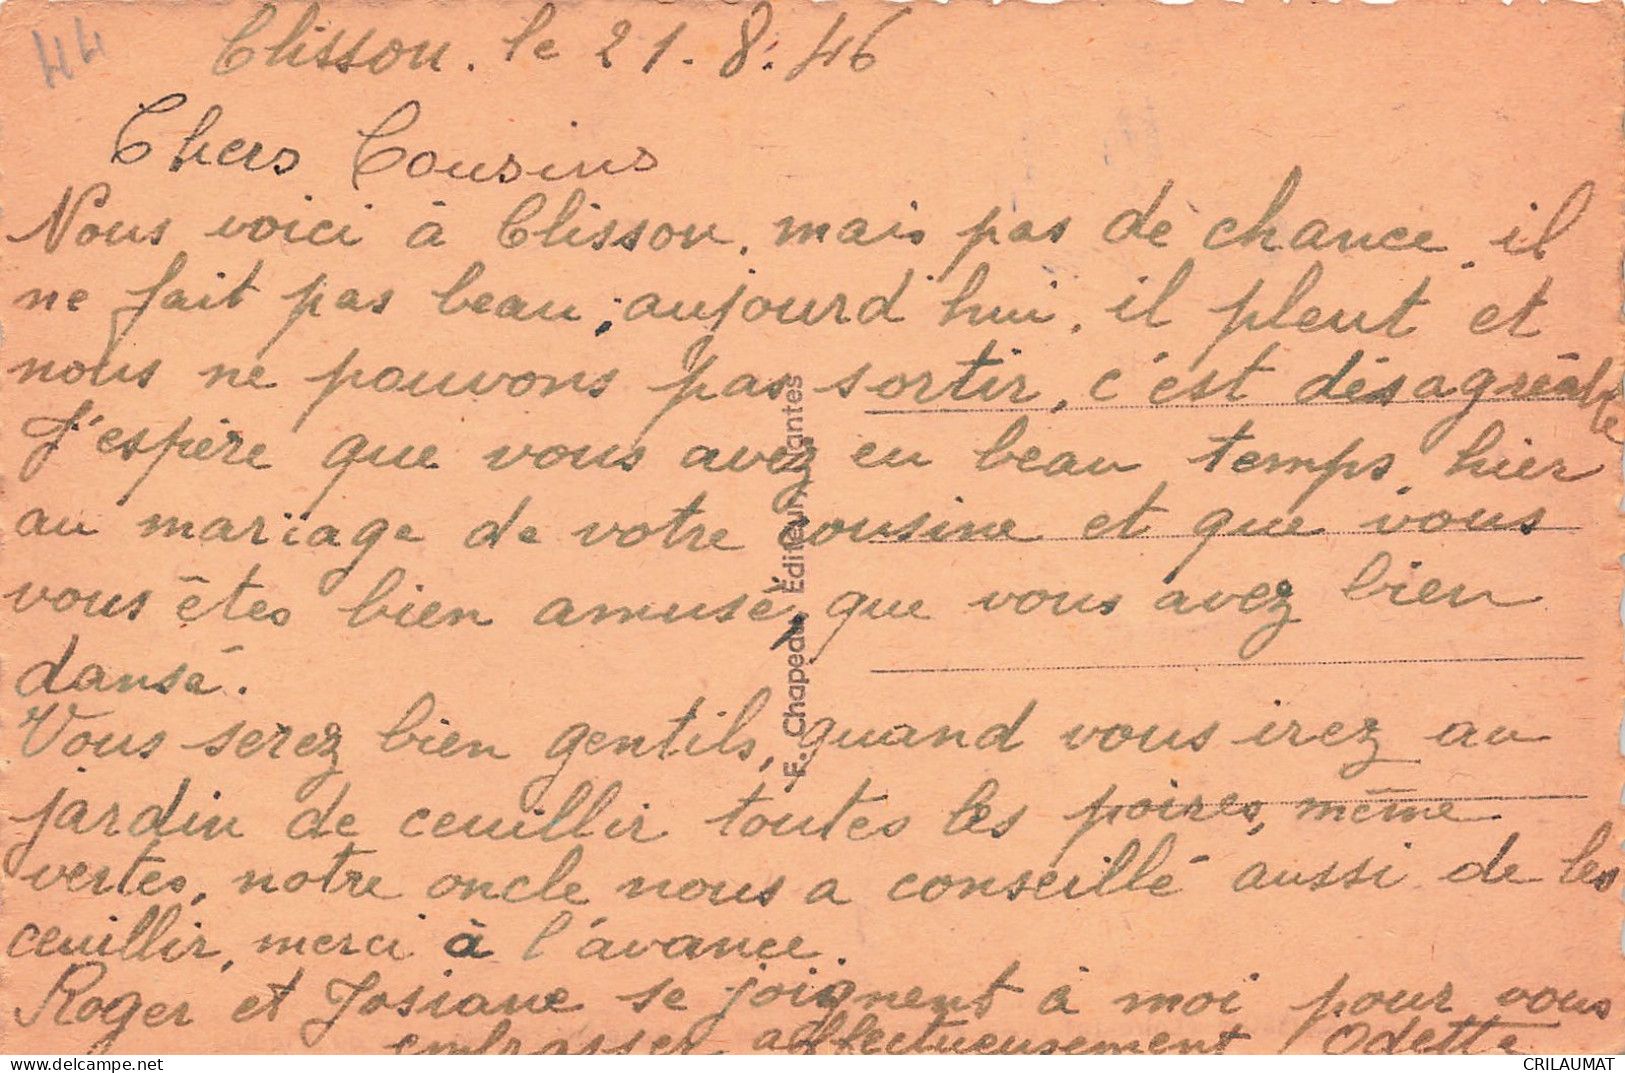 44
Clisson. le 21.8.46
Chers Cousins
Nous voici à Clisson, mais pas de chance, il
ne fait pas beau, aujourd'hui, il pleut et
nous ne pouvons pas sortir, c'est désagréable
J'espère que vous avez eu beau temps, hier
au mariage de votre cousine et que vous
vous êtes bien amusé, que vous avez bien
dansé.
Vous serez bien gentils, quand vous irez au
jardin de ceuillir toutes les poires, même
vertes, notre oncle nous a conseillé aussi de les
ceuillir, merci à l'avance.
Roger et Josiane se joignent à moi pour vous
embrasser affectueusement Odette
F. Chapeau, Editeur, Nantes
delcampe.net
CRILAUMAT